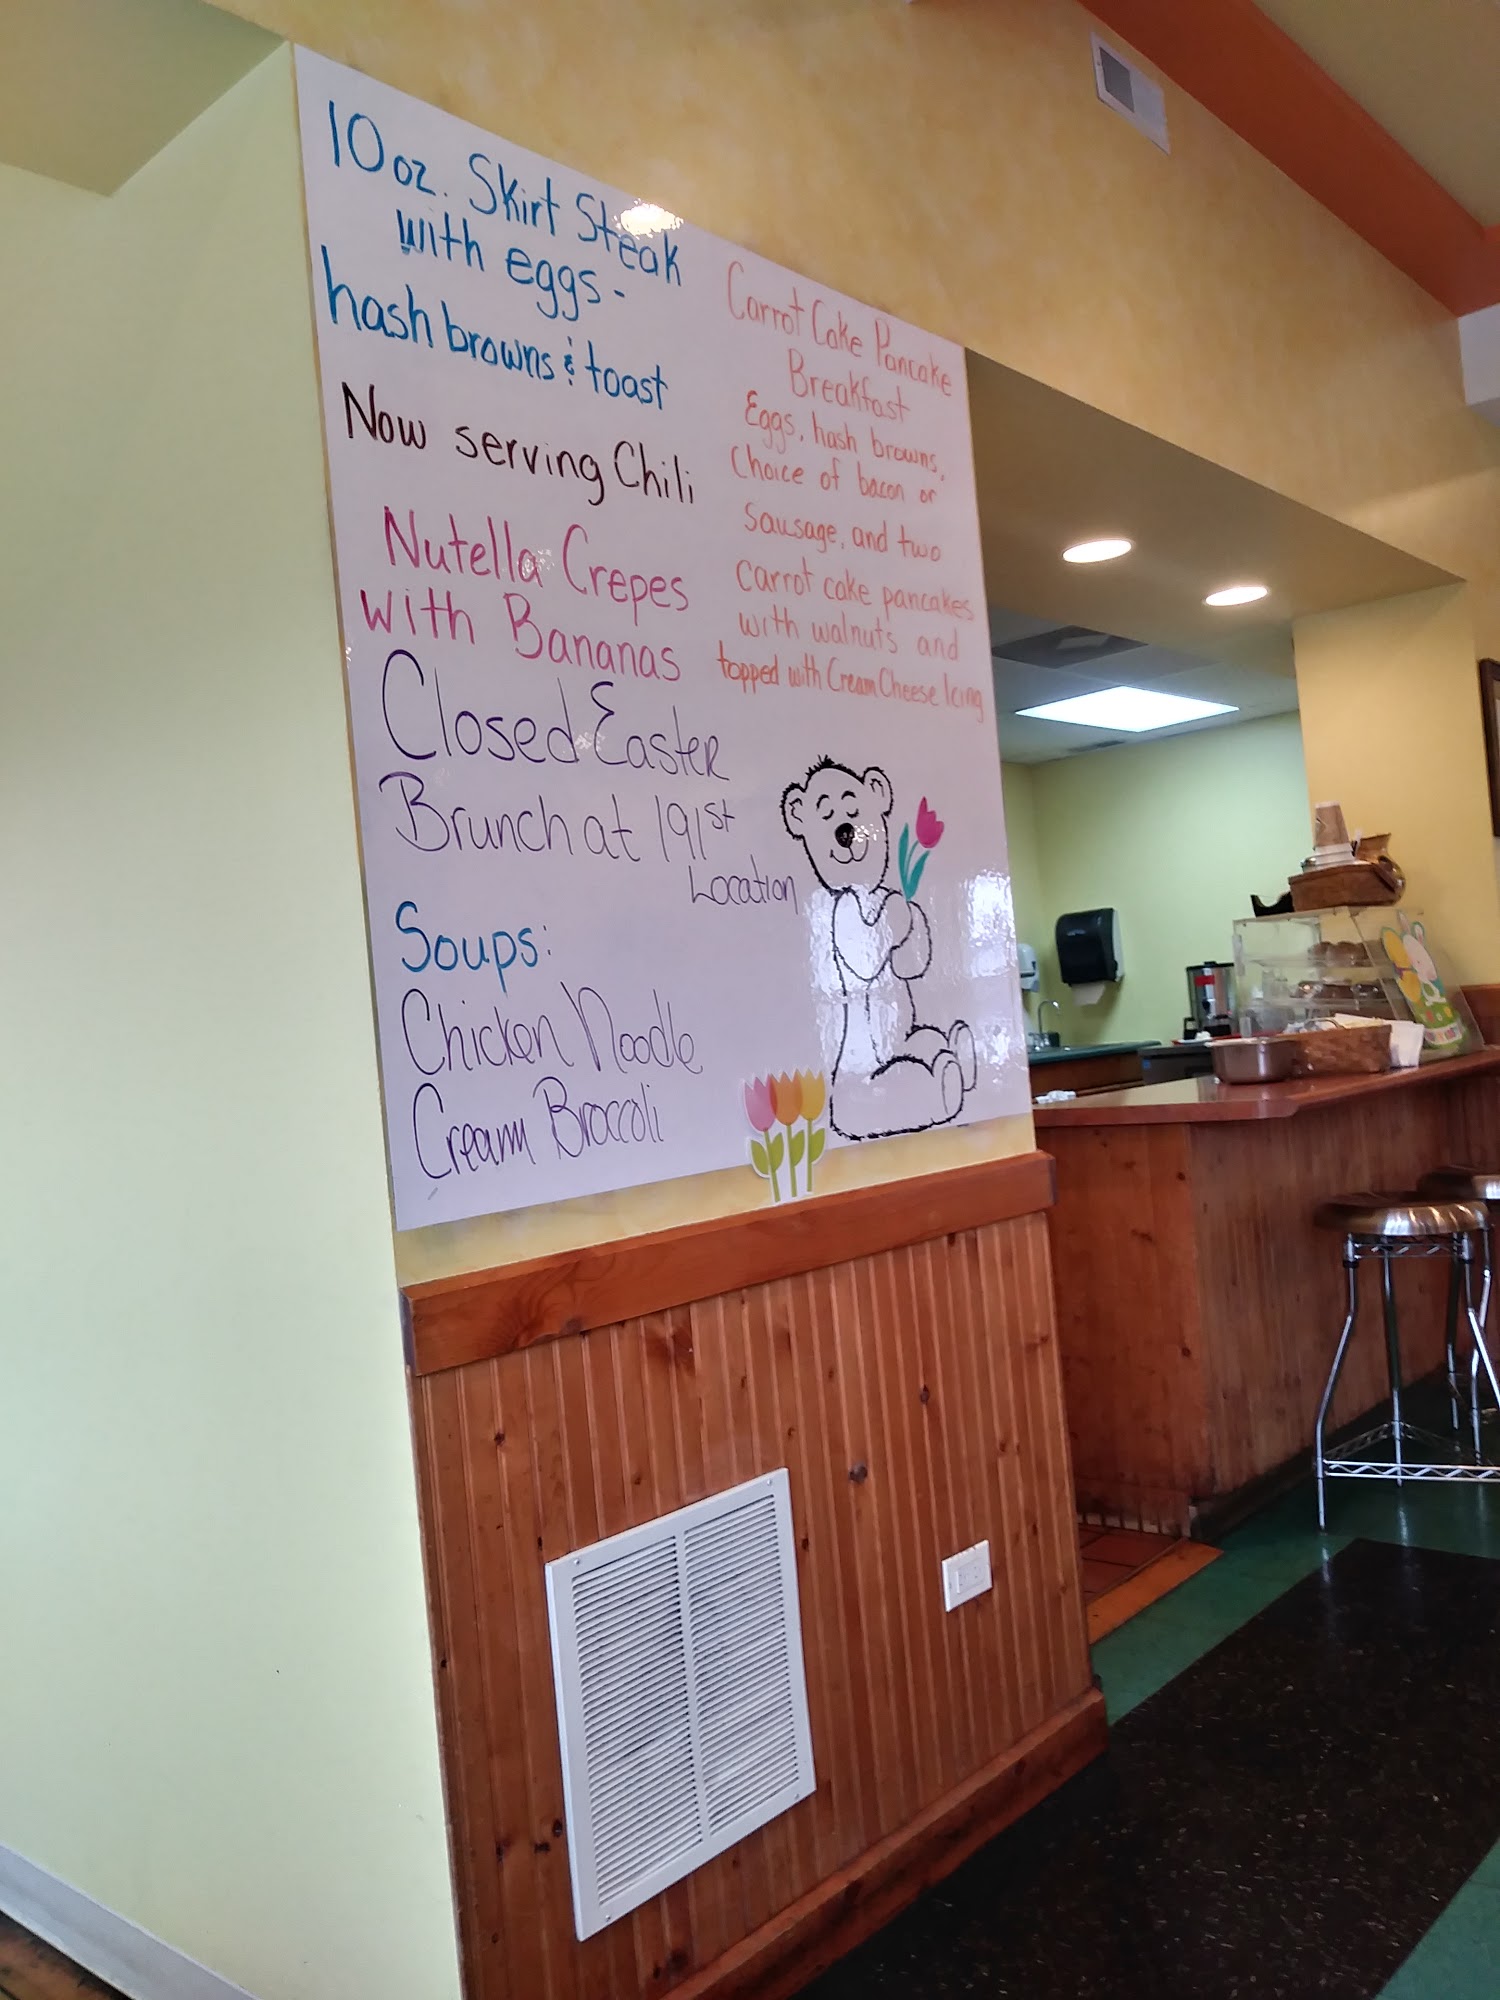 10 oz. Skirt Steak
with eggs -
hash browns & toast
Now serving Chili
Nutella Crepes
with Bananas
Closed Easter
Brunch at 191st
Location
Soups:
Chicken Noodle
Cream Broccoli
Carrot Cake Pancake
Breakfast
Eggs, hash browns,
Choice of bacon or
Sausage, and two
carrot cake pancakes
with walnuts and
topped with Cream Cheese Icing